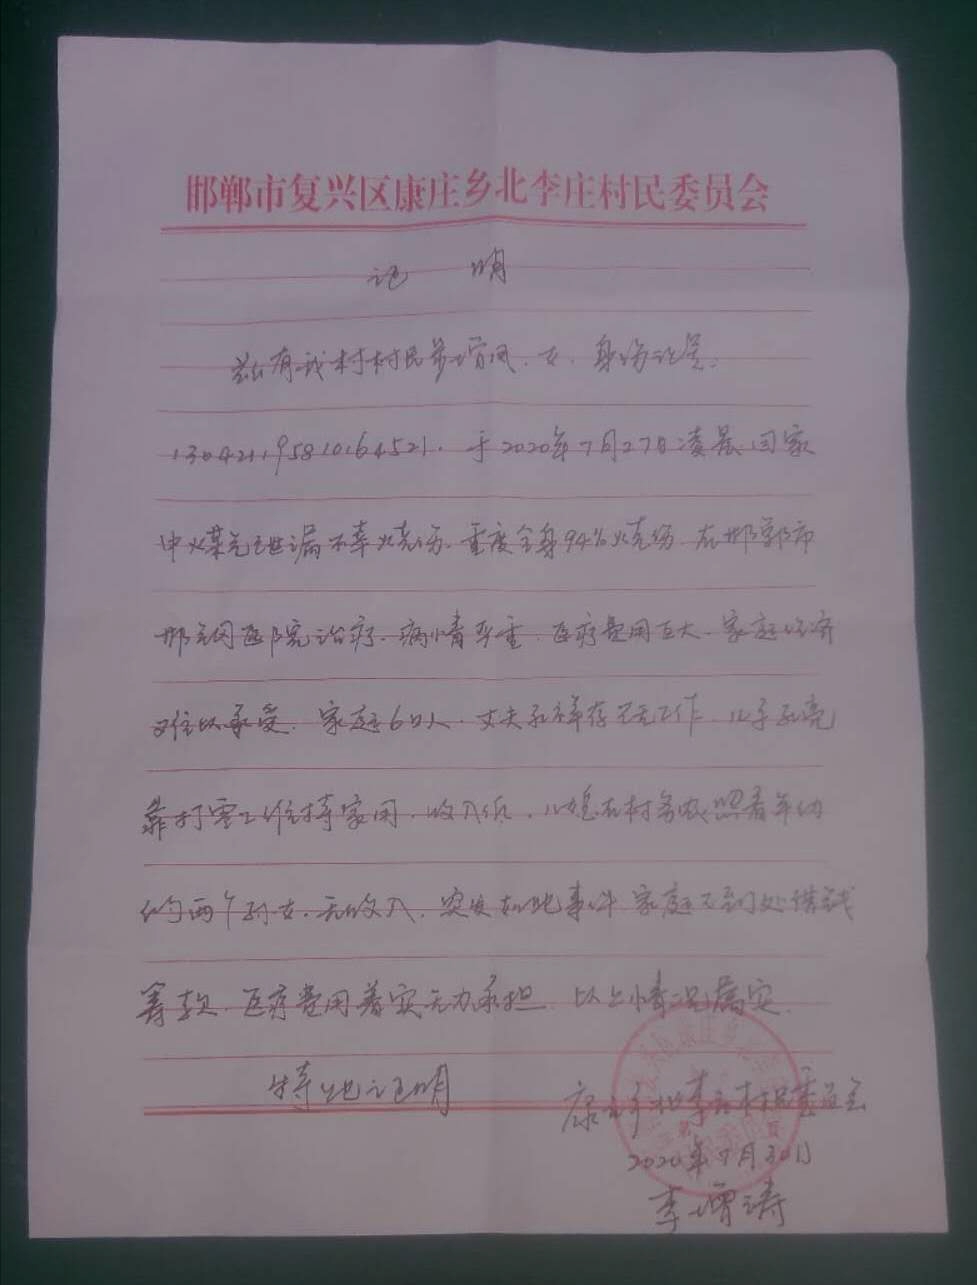 邯郸市复兴区康庄乡北李庄村民委员会
证 明
兹有我村村民 增凤，女，身份证号：
130421195810164521，于2020年7月27日凌晨因家
中煤气泄漏不幸烧伤，重度全身94%烧伤，在邯郸市
邯钢医院治疗，病情严重，医疗费用巨大，家庭经济
难以承受，家庭6口人，丈夫 祥存 无工作，儿子 亮
靠打零工维持家用，收入低，儿媳在村务农照看年幼
的两个孙女，无收入，突发如此事件家庭 到处借钱
筹款，医疗费用着实无力承担，以上情况属实。
特此证明
康庄乡北李庄村民委员会
2020年7月30日
李增涛